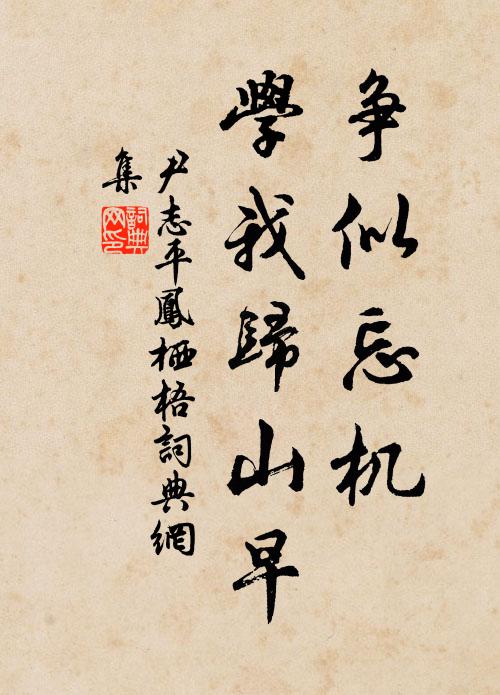 争似忘机
學我歸山早
尹志平鳳栖梧詞典網
集
詞典網印